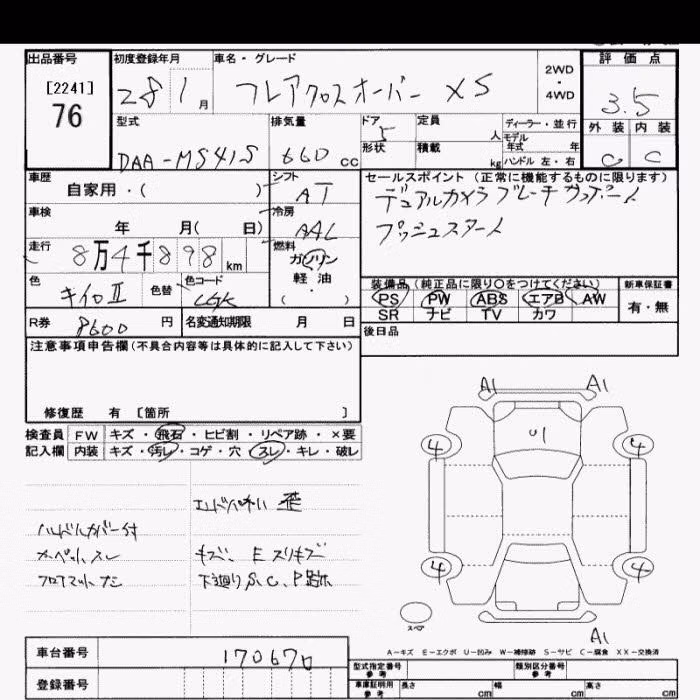 出品番号 初度登録年月 車名・グレード 評価点
[2241] 76
28 1月 フレアクロスオーバー XS
2WD・4WD
3.5
型式 排気量 ドア 定員 人 ディーラー・並行 外装 内装
DAA-MS41S 660 cc 5
モデル年式 年
形状 積載 kg ハンドル 左・右 C C
車歴 シフト セールスポイント (正常に機能するものに限ります)
自家用・( ) AT デュアルカメラブレーキサポート
車検 冷房 プッシュスタート
年 月( 日) AAC
走行 燃料
8万4千898km ガソリン
軽油
・
( )
色 色替 色コード
キイロⅡ
装備品 (純正品に限り○をつけてください) 新車保証書
PS PW ABS エアB AW 有・無
SR ナビ TV カワ
R券 8600円 名変通知期限 月 日 後日品
注意事項申告欄(不具合内容等は具体的に記入して下さい)
修復歴 有 [箇所 ]
検査員 FW キズ・飛石・ヒビ割・リペア跡・×要
記入欄 内装 キズ・汚レ・コゲ・穴・スレ・キレ・破レ
A1 A1
U1
4 4
ハンドルカバー付
カーペットスレ キズ、Eスリキズ
フロアマットナシ 下廻りS.C.P跡
4 4
スペア
A1
A-キズ E-エクボ U-凹み W-補修跡 S-サビ C-腐食 XX-交換済
車台番号 170670
登録番号
型式指定番号 参考 類別区分番号 参考
車庫証明用 参考 長さ cm 幅 cm 高さ cm